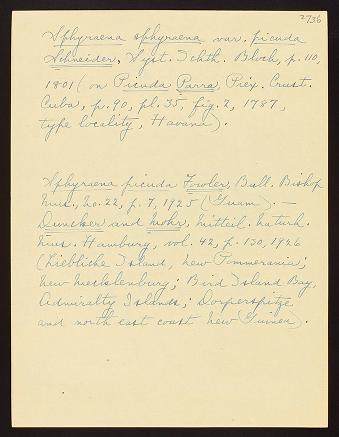 2736
Sphyraena sphyraena var. picuda
Schneider, Syst. Ichth. Bloch, p. 110,
1801 (on Picuda Parra, Piez. Crust.
Cuba, p. 90, pl. 35, fig. 2, 1787,
type locality, Havana).
Sphyraena picuda Fowler, Bull. Bishop
Mus., no. 22, p. 7, 1925 (Guam). —
Duncker and Mohr, Mitteil. Naturh.
Mus. Hamburg, vol. 42, p. 130, 1926
(Liebliche Island, New Pommerania;
New Mecklenburg; Bird Island Bay,
Admiralty Islands; Dorperspitze
and north east coast New Guinea).